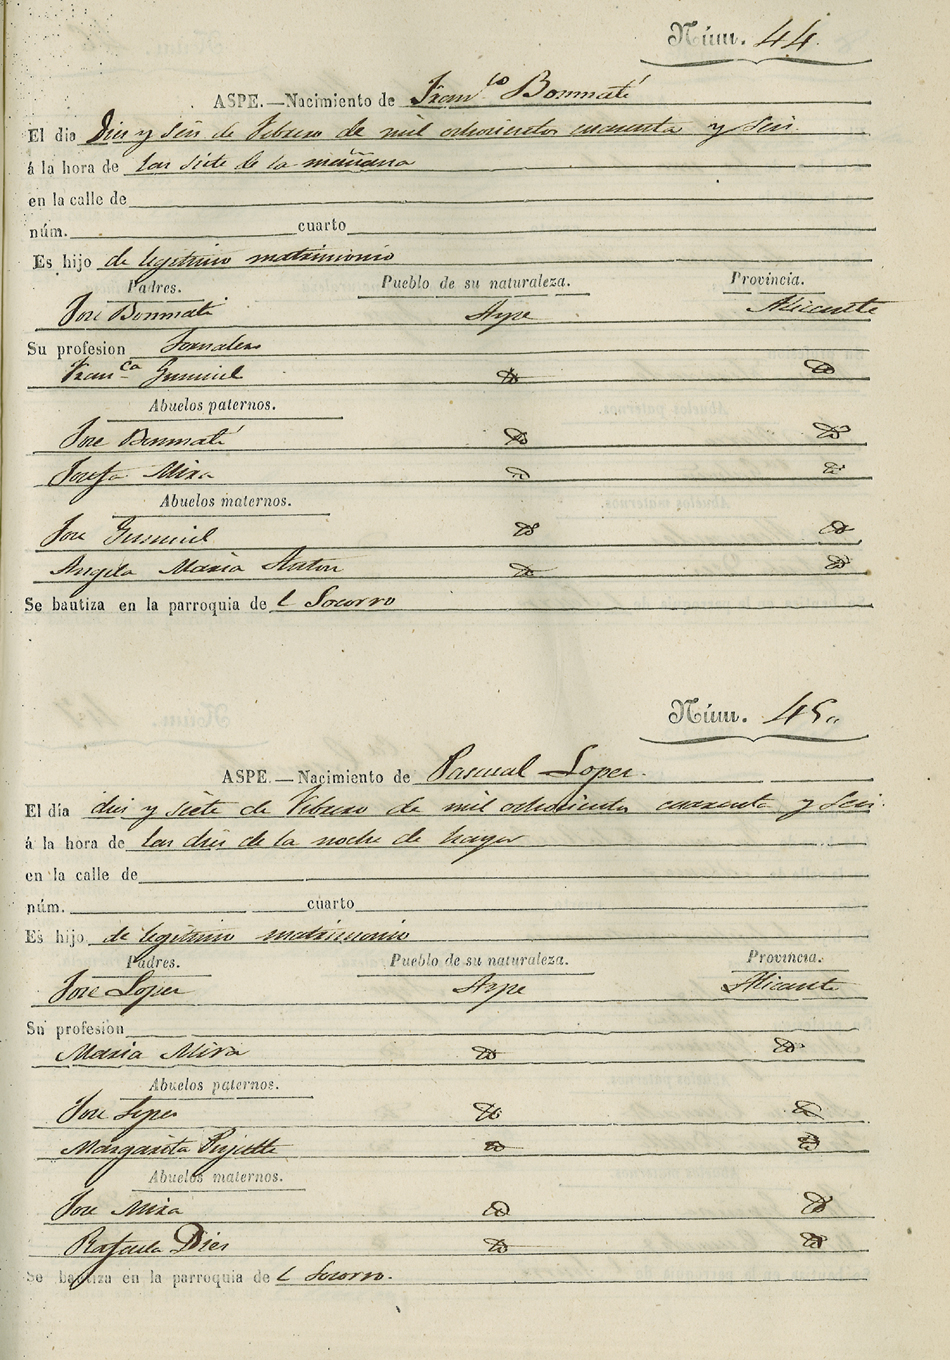 Núm. 44.
ASPE.—Nacimiento de Fran.co Bonmatí
El dia Dies y seis de Febrero de mil ochocientos cuarenta y seis
á la hora de las siete de la mañana
en la calle de
núm. cuarto
Es hijo de legitimo matrimonio
Padres. Pueblo de su naturaleza. Provincia.
Jose Bonmatí Aspe Alicante
Su profesion Jornalero
Fran.ca
Abuelos paternos.
Jose Bonmatí
Josefa Mira
Abuelos maternos.
Jose
Angela Maria Anton
Se bautiza en la parroquia de l Socorro
Núm. 45.
ASPE.—Nacimiento de Pascual Lopez.
El día dies y siete de Febrero de mil ochocientos cuarenta y seis.
á la hora de las dies de la noche de hayer
en la calle de
núm. cuarto
Es hijo de legitimo matrimonio
Padres. Pueblo de su naturaleza. Provincia.
Jose Lopez Aspe Alicante
Su profesion
Maria Mira
Abuelos paternos.
Jose Lopez
Margarita
Abuelos maternos.
Jose Mira
Rafaela Dies
Se bautiza en la parroquia de l Socorro.